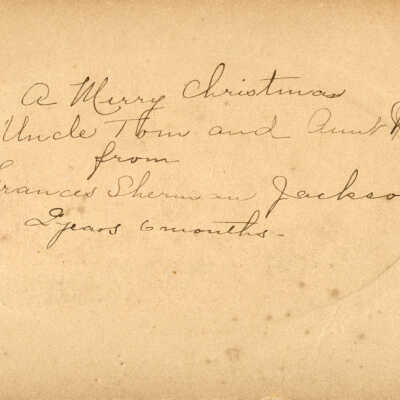 A Merry Christmas
Uncle Tom and Aunt
from
Frances Sherman Jackso
2 years 6 months.